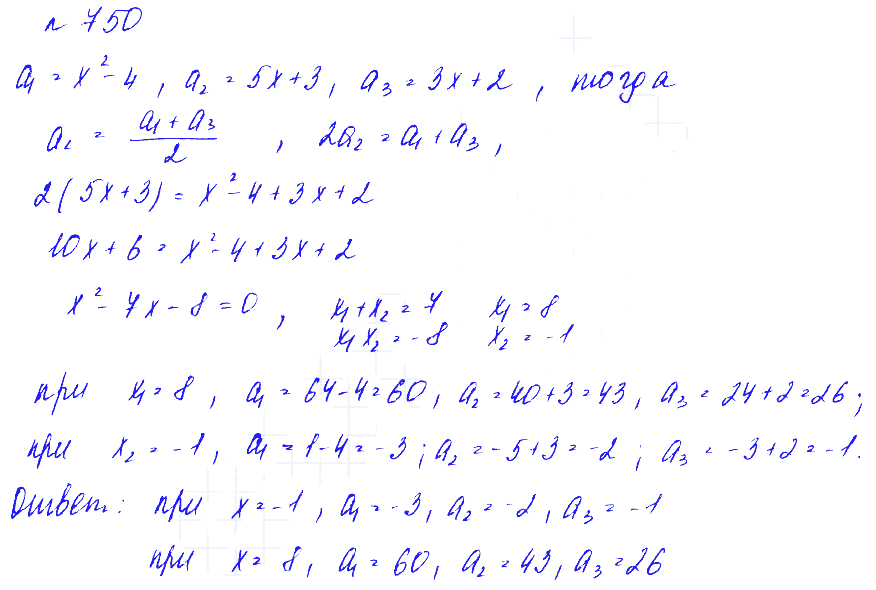 n 750
a₁ = x² - 4 , a₂ = 5x + 3 , a₃ = 3x + 2 , тогда
a₂ = (a₁ + a₃)/2 , 2a₂ = a₁ + a₃ ,
2(5x + 3) = x² - 4 + 3x + 2
10x + 6 = x² - 4 + 3x + 2
x² - 7x - 8 = 0 , x₁ + x₂ = 7 x₁ = 8
x₁ x₂ = -8 x₂ = -1
при x₁ = 8 , a₁ = 64 - 4 = 60 , a₂ = 40 + 3 = 43 , a₃ = 24 + 2 = 26 ;
при x₂ = -1 , a₁ = 1 - 4 = -3 ; a₂ = -5 + 3 = -2 ; a₃ = -3 + 2 = -1.
Ответ: при x = -1 , a₁ = -3 , a₂ = -2 , a₃ = -1
при x = 8 , a₁ = 60 , a₂ = 43 , a₃ = 26